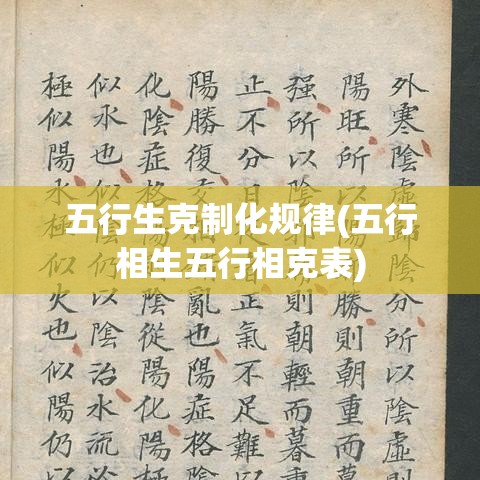 五行生克制化规律(五行
相生五行相克表)
外寒陰虛陰分所以陰虛則
陽旺所以勝則朝重而暮
强所以則朝輕而暮重
止不分日正氣不足難以
陽勝復亂也陽症格陰
化陰症格陰從陽化陽
似水也似以陰治水流必
極似陽水極似火也似陽仍以